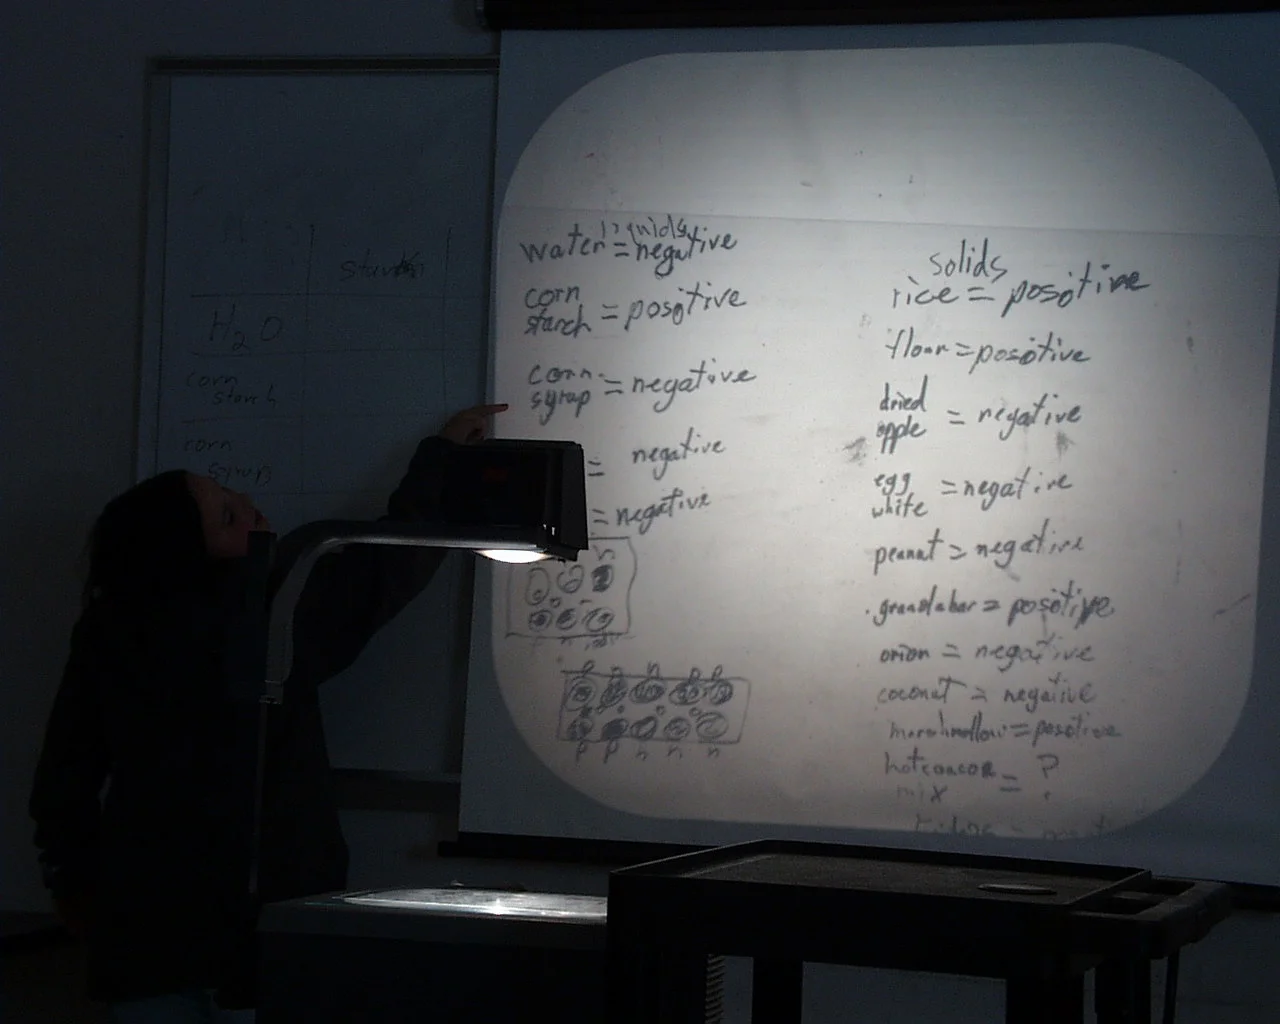 starch
H2O
corn
starch
corn
syrup
liquids
water = negative
corn
starch = positive
corn
syrup = negative
= negative
= negative
n
n
p n n p p
p p n n n
solids
rice = positive
flour = positive
dried
apple = negative
egg
white = negative
peanut = negative
granola bar = positive
onion = negative
coconut = negative
marshmallow = positive
hot cocoa
mix = ?